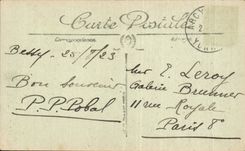 Carte Postale
Correspondance
Bessy - 25/7/23
Bon Souvenir
P. P. Pobal
E. Leroy
Galerie Brunner
11 rue Royale
Paris 8e